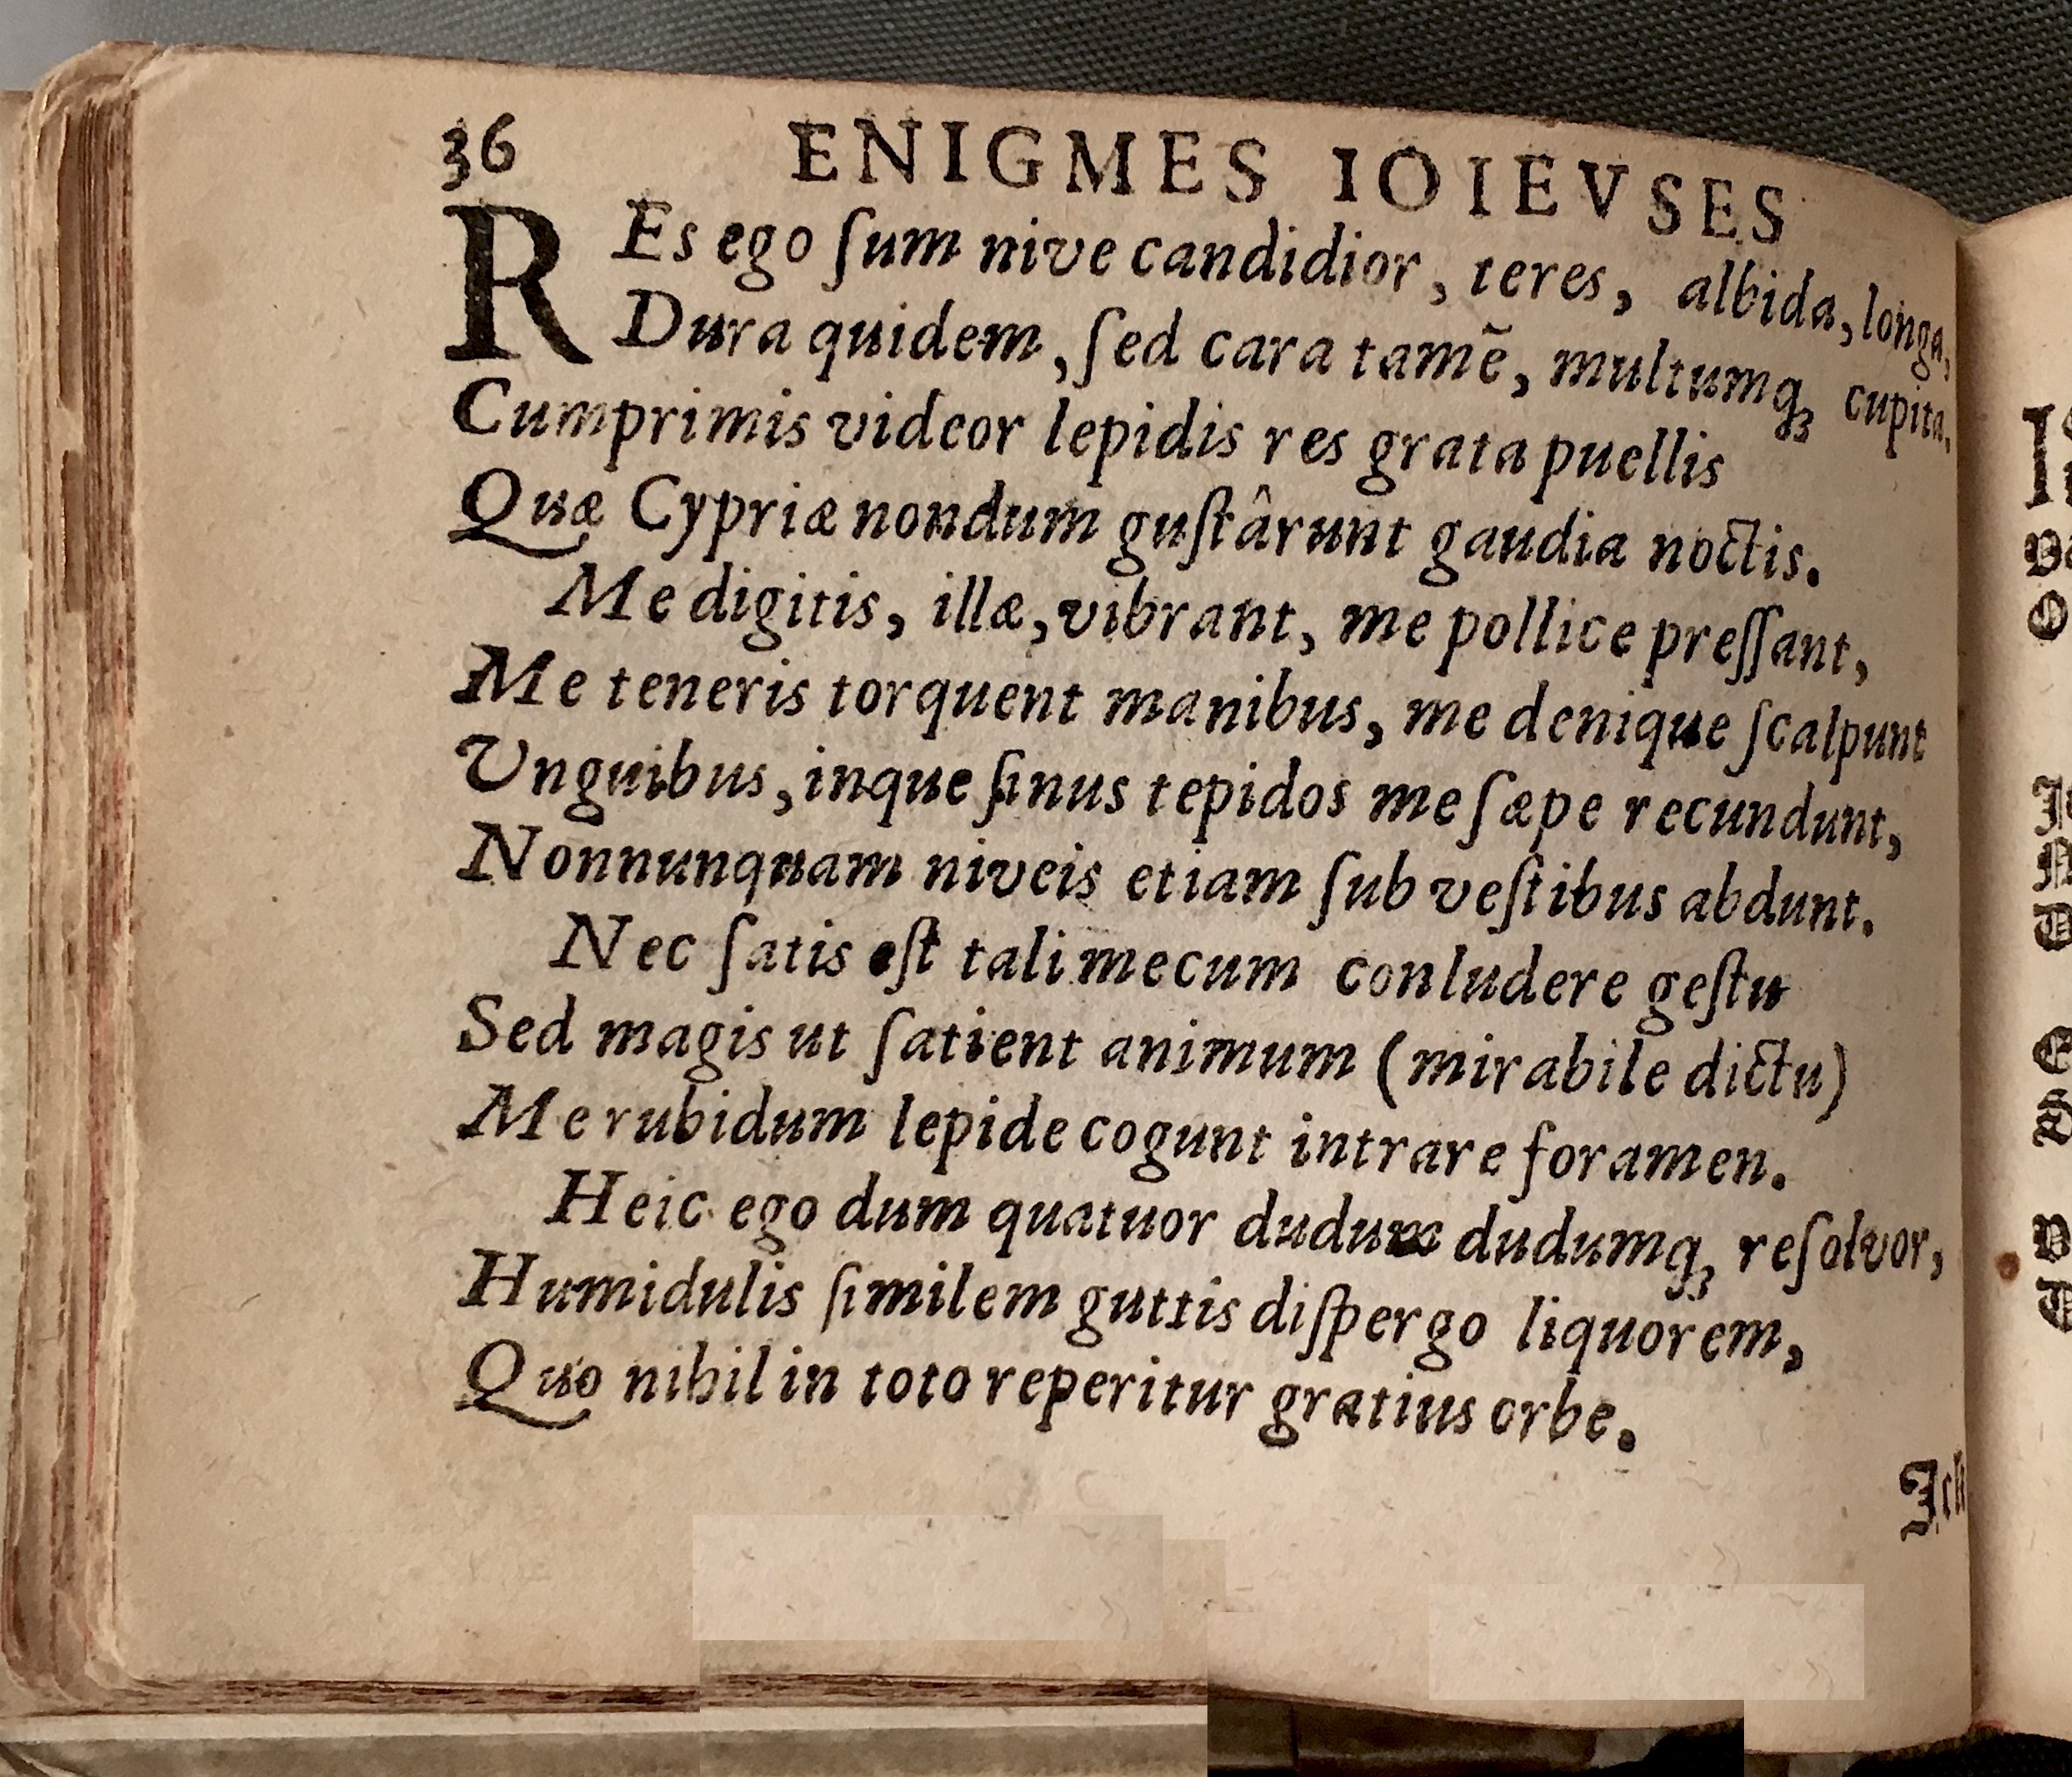 36 ENIGMES IOIEVSES
REs ego ſum nive candidior, teres, albida, longa,
Dura quidem, ſed cara tamẽ, multumqꝫ cupita,
Cumprimis videor lepidis res grata puellis
Quæ Cypriæ nondum guſtârunt gaudia noctis.
Me digitis, illæ, vibrant, me pollice preſſant,
Me teneris torquent manibus, me denique ſcalpunt
Vnguibus, inque ſinus tepidos me ſæpe recundunt,
Nonnunquam niveis etiam ſub veſtibus abdunt.
Nec ſatis eſt tali mecum conludere geſtu
Sed magis ut ſatient animum (mirabile dictu)
Me rubidum lepide cogunt intrare foramen.
Heic ego dum quatuor dudum dudumqꝫ reſolvor,
Humidulis ſimilem guttis diſpergo liquorem,
Quo nihil in toto reperitur gratius orbe.
Ich